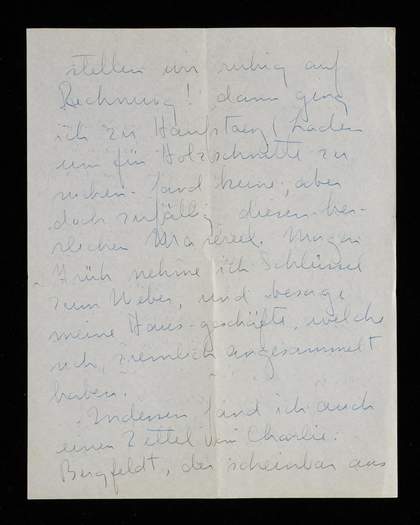 stellen wir ruhig auf
Rechnung! dann ging
ich zu Hanfstaengl Laden
um für Holzschnitte zu
suchen. fand keine, aber
doch zufällig diesen her-
rlichen Masereel. Morgen
Früh nehme ich Schlüssel
zum Weber, und besorge
meine Haus-geschäfte, welche
sich, ziemlich angesammelt
haben.
Indessen fand ich auch
einen Zettel von Charlie:
Bergfeldt, der scheinbar aus